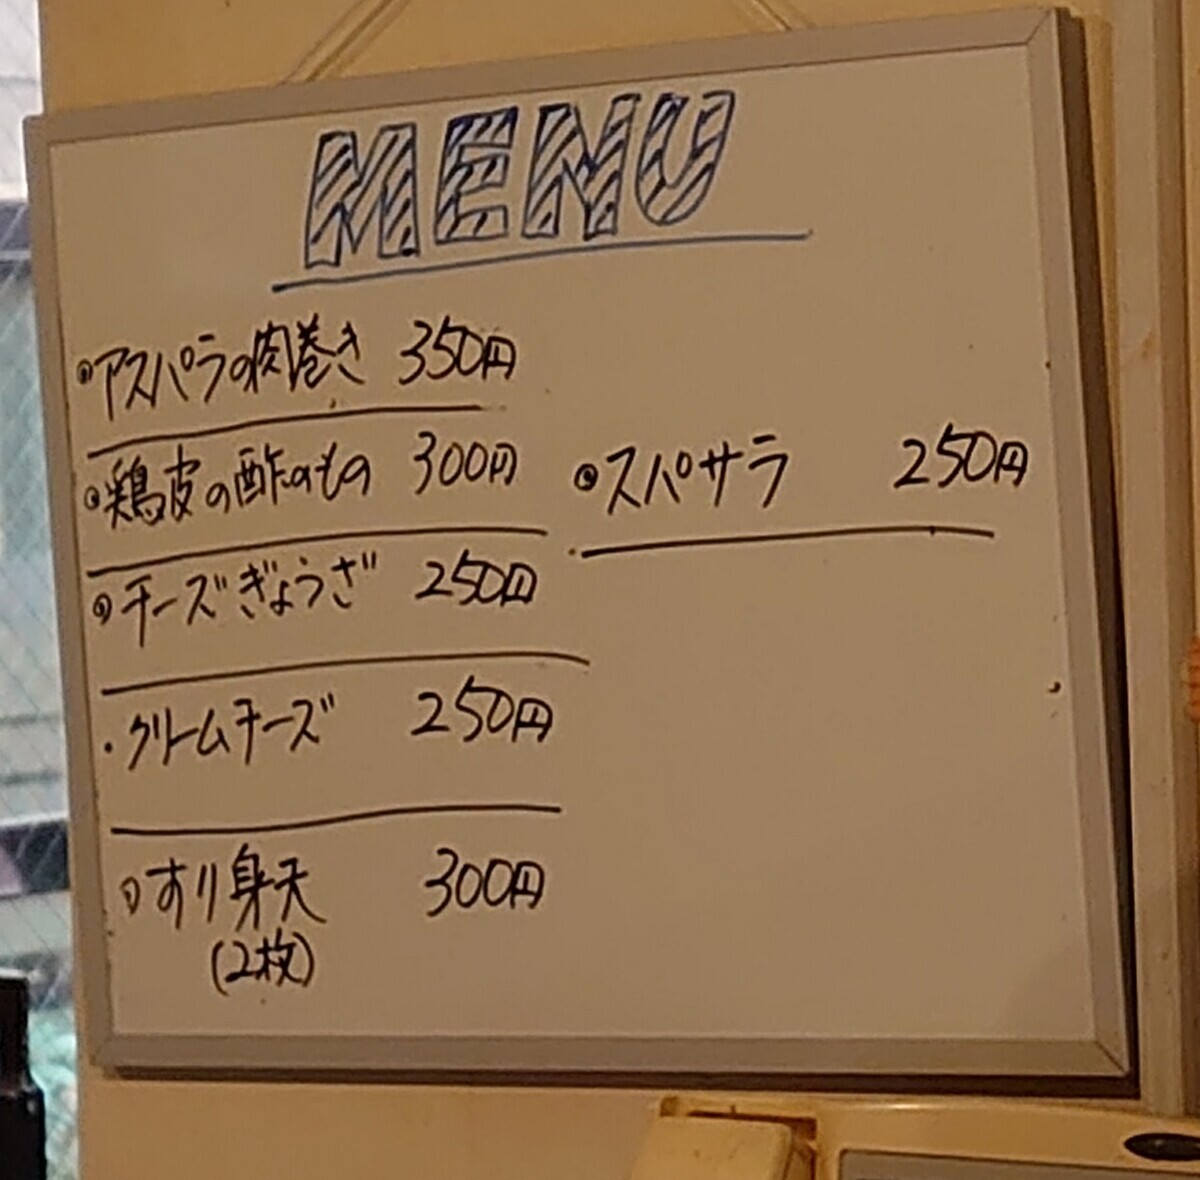 MENU
・アスパラの肉巻き 350円
・鶏皮の酢のもの 300円
・チーズぎょうざ 250円
・クリームチーズ 250円
・すり身天 300円
(2枚)
・スパサラ 250円